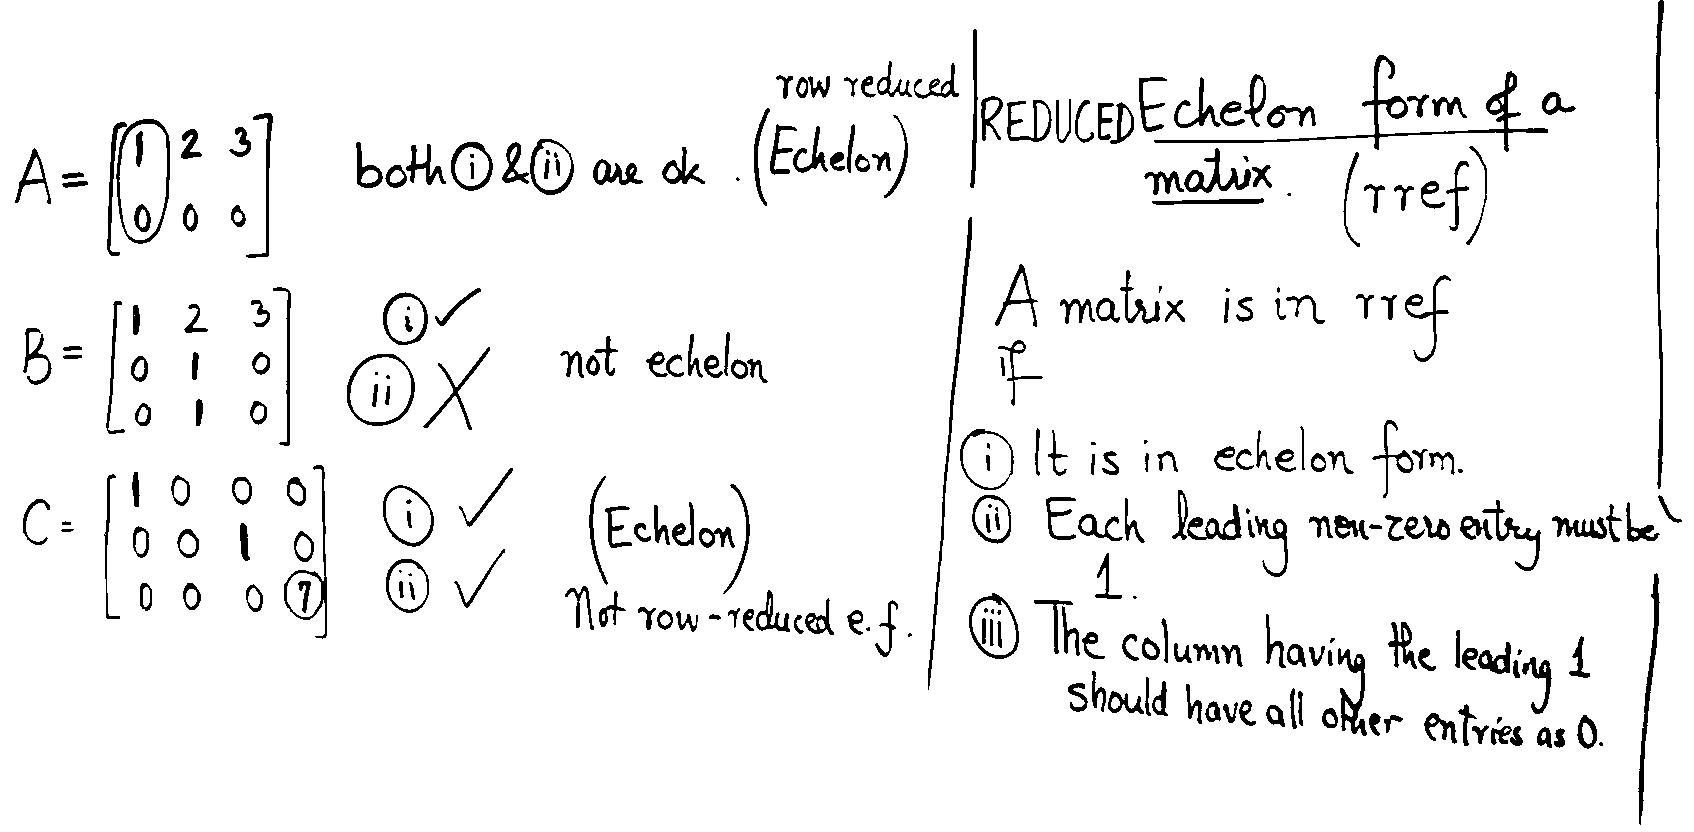 row reduced
A = [1 2 3
0 0 0]
both (i) & (ii) are ok . (Echelon)
B = [1 2 3
0 1 0
0 1 0]
(i) ✓
(ii) X
not echelon
C = [1 0 0 0
0 0 1 0
0 0 0 7]
(i) ✓
(ii) ✓
(Echelon)
Not row-reduced e.f.
REDUCED Echelon form of a
matrix. (rref)
A matrix is in rref
if
(i) It is in echelon form.
(ii) Each leading non-zero entry must be
1.
(iii) The column having the leading 1
should have all other entries as 0.